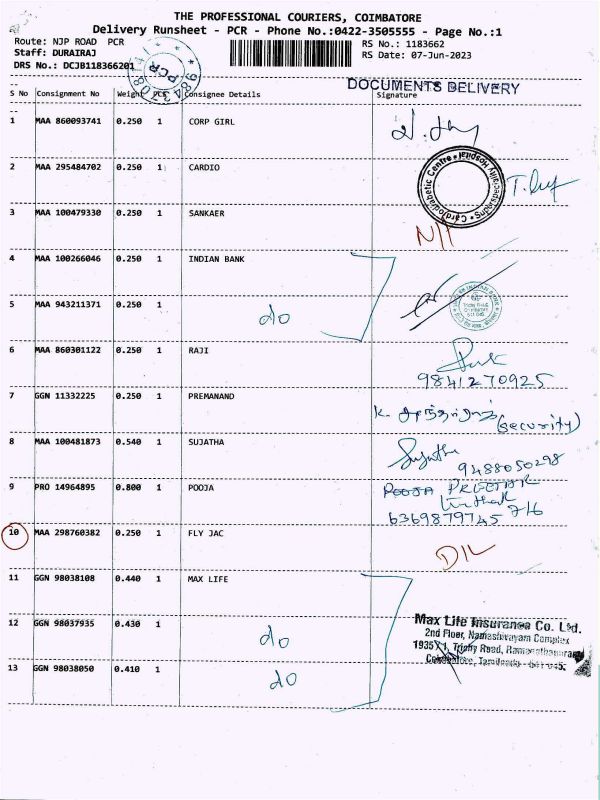 THE PROFESSIONAL COURIERS, COIMBATORE
Delivery Runsheet - PCR - Phone No.:0422-3505555 - Page No.:1
Route: NJP ROAD PCR
Staff: DURAIRAJ
DRS No.: DCJB118366201
RS No.: 1183662
RS Date: 07-Jun-2023
PCR
DOCUMENTS DELIVERY
S No Consignment No Weight PCS Consignee Details Signature
1 MAA 860093741 0.250 1 CORP GIRL
2 MAA 295484702 0.250 1 CARDIO
Cardiodiabetic Centre
3 MAA 100479330 0.250 1 SANKAER
4 MAA 100266046 0.250 1 INDIAN BANK
5 MAA 943211371 0.250 1 do
6 MAA 860301122 0.250 1 RAJI
9841270925
7 GGN 11332225 0.250 1 PREMANAND
(security)
8 MAA 100481873 0.540 1 SUJATHA
Sujatha
9488050298
9 PRO 14964895 0.800 1 POOJA
POOJA
6369879745
10 MAA 298760382 0.250 1 FLY JAC
D/L
11 GGN 98038108 0.440 1 MAX LIFE
12 GGN 98037935 0.430 1 do
Max Life Insurance Co. Ltd.
2nd Floor, Namashivayam Complex
Trichy Road, Ramanathapuram
Coimbatore, Tamilnadu - 641 045.
13 GGN 98038050 0.410 1 do